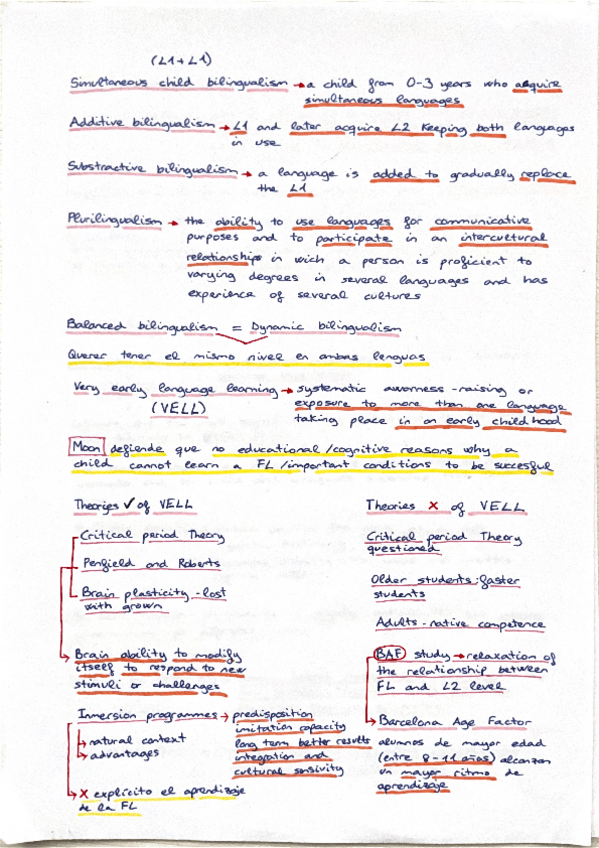 (L1 + L1)
Simultaneous child bilingualism → a child from 0-3 years who acquire
simultaneous languages
Additive bilingualism → L1 and later acquire L2 keeping both languages
in use
Substractive bilingualism → a language is added to gradually replace
the L1
Plurilingualism → the ability to use languages for communicative
purposes and to participate in an intercultural
relationships in wich a person is proficient to
varying degrees in several languages and has
experience of several cultures
Balanced bilingualism = Dynamic bilingualism
Querer tener el mismo nivel en ambas lenguas
Very early language learning → systematic awarness-raising or
(VELL) exposure to more than one language
taking place in an early childhood
Moon defiende que no educational/cognitive reasons why a
child cannot learn a FL/important conditions to be succesful
Theories ✓ of VELL
Critical period Theory
Penfield and Roberts
Brain plasticity - lost
with grown
Brain ability to modify
itself to respond to new
stimuli or challenges
Inmersion programmes → predisposition
imitation capacity
→ natural context long term better results
→ advantages integration and
cultural sensivity
→ X explícito el aprendizaje
de la FL
Theories X of VELL
Critical period Theory
questioned
Older students: faster
students
Adults - native competence
BAF study → relaxation of
the relationship between
FL and L2 level
→ Barcelona Age Factor
alumnos de mayor edad
(entre 8-11 años) alcanzan
un mayor ritmo de
aprendizaje